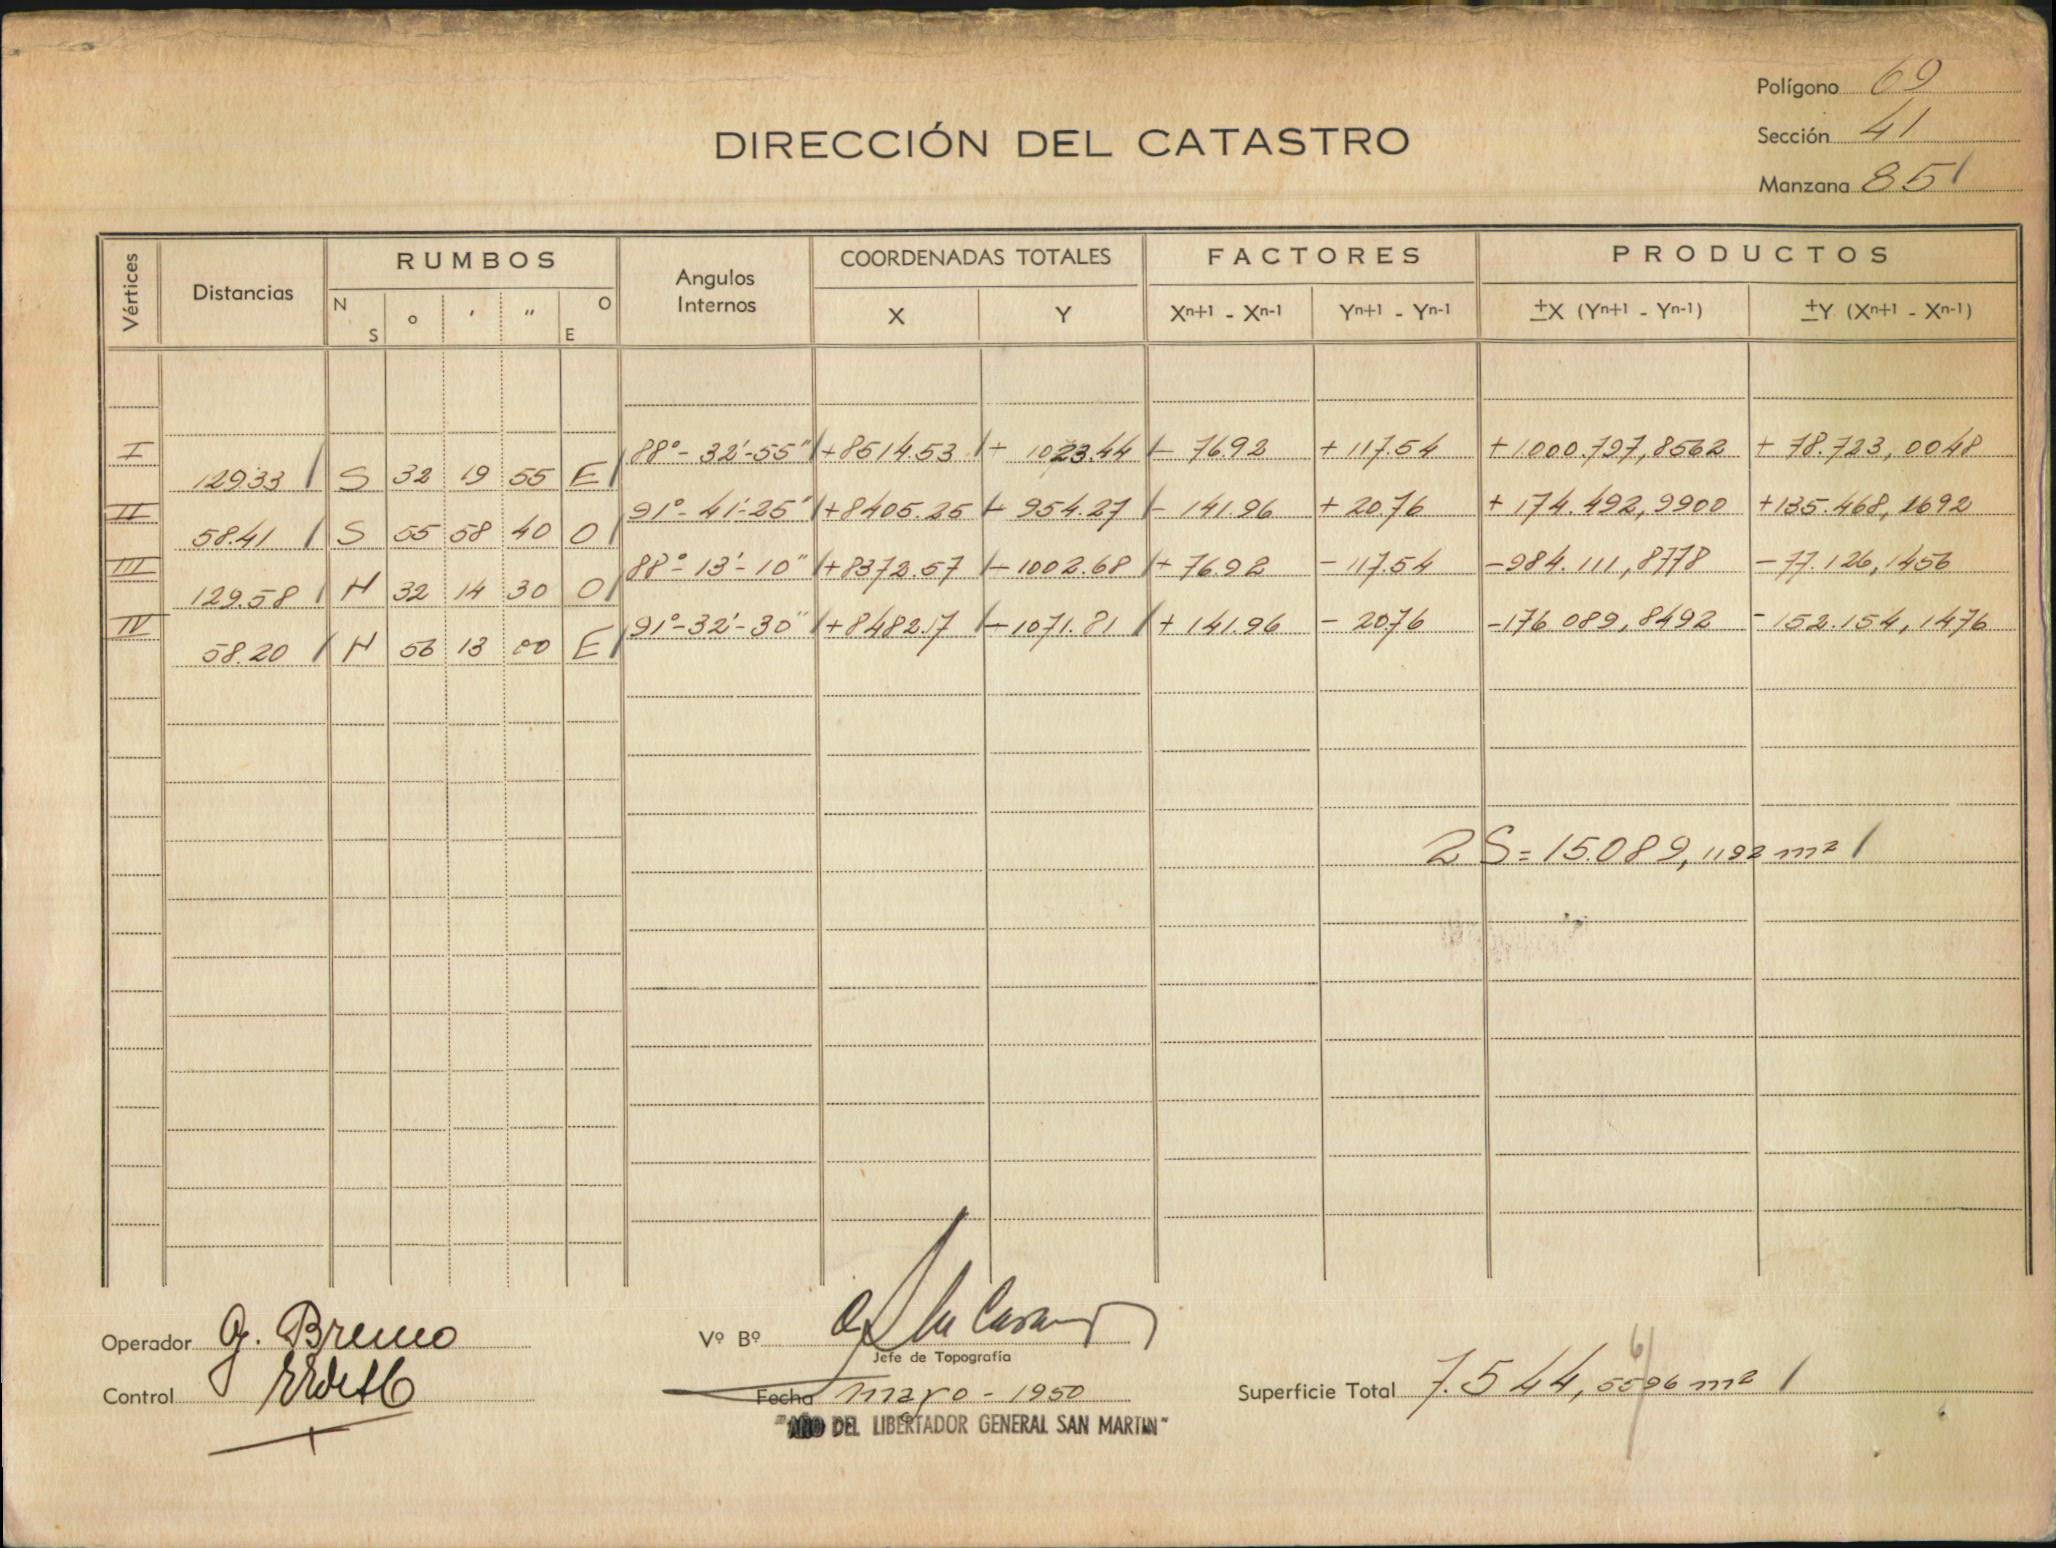 Polígono 69
DIRECCIÓN DEL CATASTRO
Sección 41
Manzana 85
Vértices Distancias RUMBOS Angulos Internos COORDENADAS TOTALES FACTORES PRODUCTOS
N S o ' " O E X Y Xn+1 - Xn-1 Yn+1 - Yn-1 ±X (Yn+1 - Yn-1) ±Y (Xn+1 - Xn-1)
I 88°-32'-55" +8514.53 + 1023.44 - 76.92 +117.54 +1.000.797,8562 + 78.723,0048
129.33 S 32 19 55 E
II 91°-41'-25" +8405.25 - 954.27 - 141.96 + 20.76 + 174.492,9900 +135.468,1692
58.41 S 55 58 40 O
III 88°-13'-10" +8372.57 -1002.68 + 76.92 -117.54 -984.111,8778 -77.126,1456
129.58 N 32 14 30 O
IV 91°-32'-30" +8482.17 -1071.81 + 141.96 - 20.76 -176.089,8492 -152.154,1476
58.20 N 56 13 00 E
2S=15.089,1192 m²
Operador G. Bremo
Vº Bº
Jefe de Topografía
Control
Fecha mayo - 1950
Superficie Total 7.544,5596 m²
6
"AÑO DEL LIBERTADOR GENERAL SAN MARTIN"